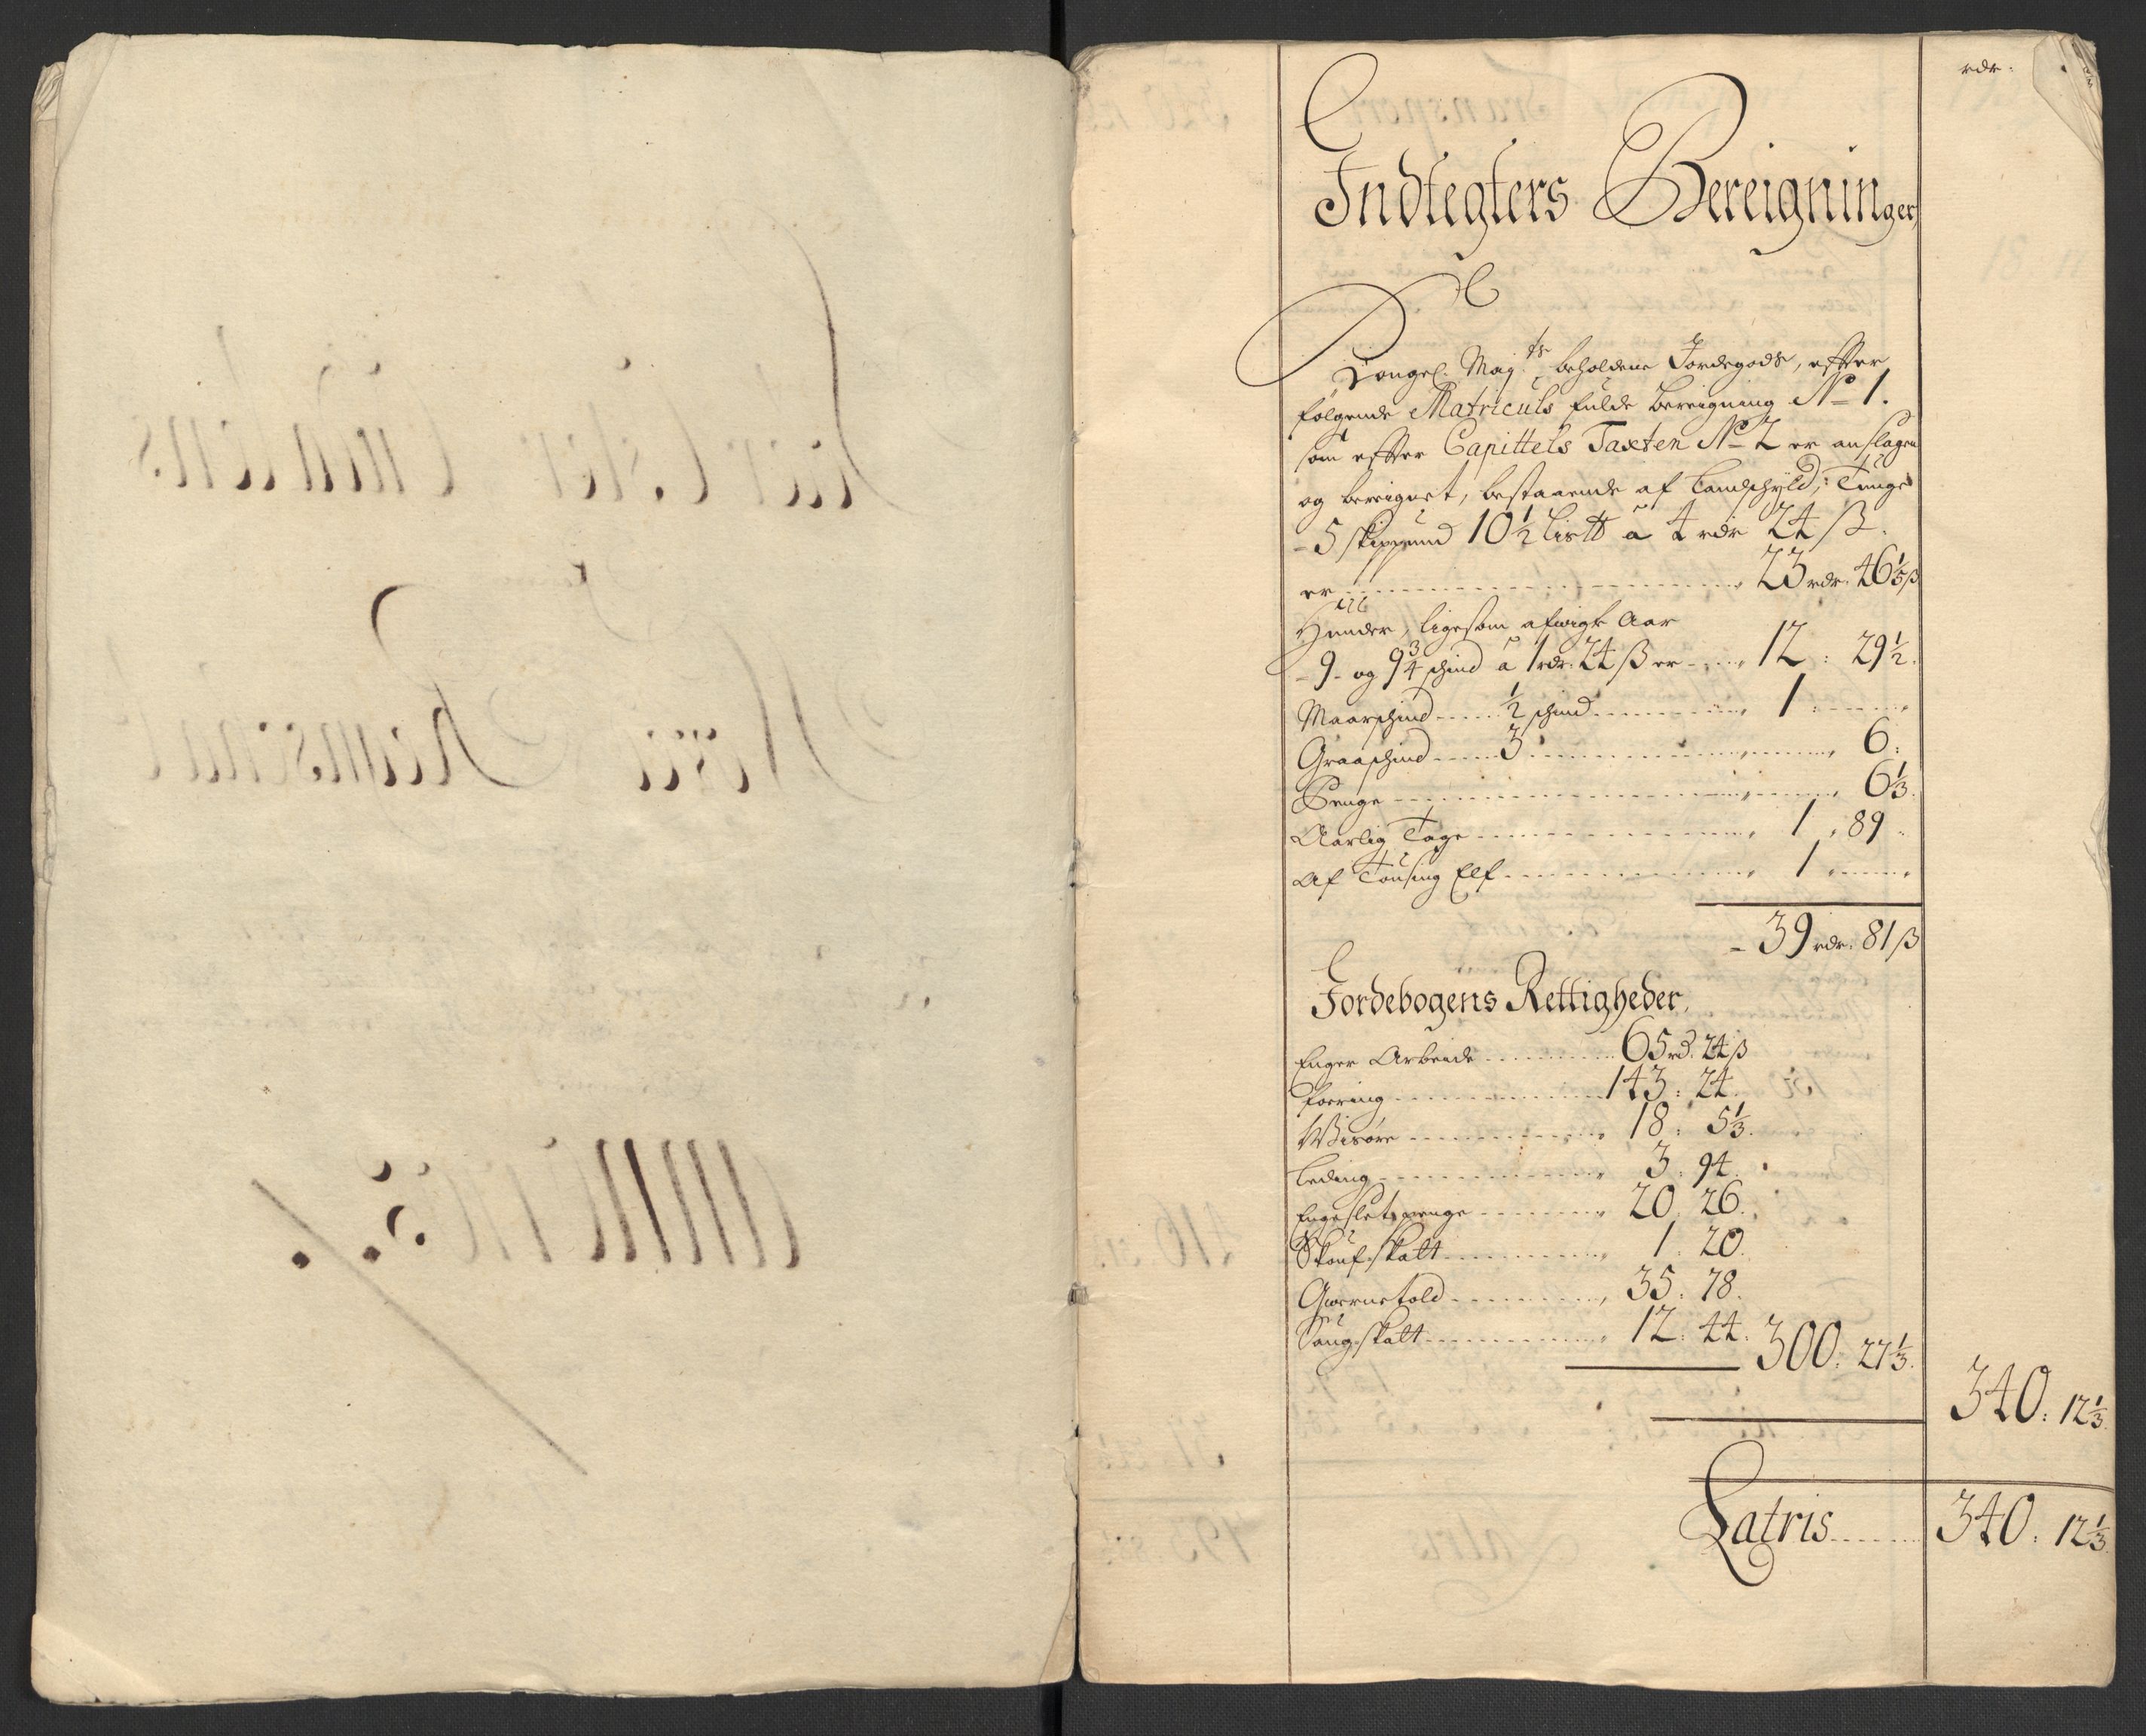 rdr:
Indtegters Bereigninger
Kongel. Maj.ts beholdene Jordegods, efter
følgende Matriculs fulde bereigning No 1.
som efter Capittels Taxten No 2 er anslagen
og bereignet, bestaaende af Landschyld, Tunge
- 5 skippund 10½ lis℔ a 4 rdr 24 ß.
er 23 rdr. 46⅕ ß
Huuder, ligesom afvigte Aar
- 9- og 9¾ schind a 1 rdr. 24 ß er 12 : 29½.
Maarschind ½ schind 1 :
Graaschind 3 6.
Penge 6⅓.
Aarlig Tage 1 . 89
Af Tousing Elf 1
- 39 rdr. 81 ß
Jordebogens Rettigheder,
Enger Arbeide 65 rd. 24 ß
foering 143 : 24.
Wisøre 18 : 5⅓.
Leding 3 : 94.
Engeslets penge 20 . 26.
Skouf skatt 1 . 20.
Qwernetold 35 . 78.
Saugskatt 12 . 44.
300 : 27⅓.
340 : 12⅓
Latris 340 : 12⅓